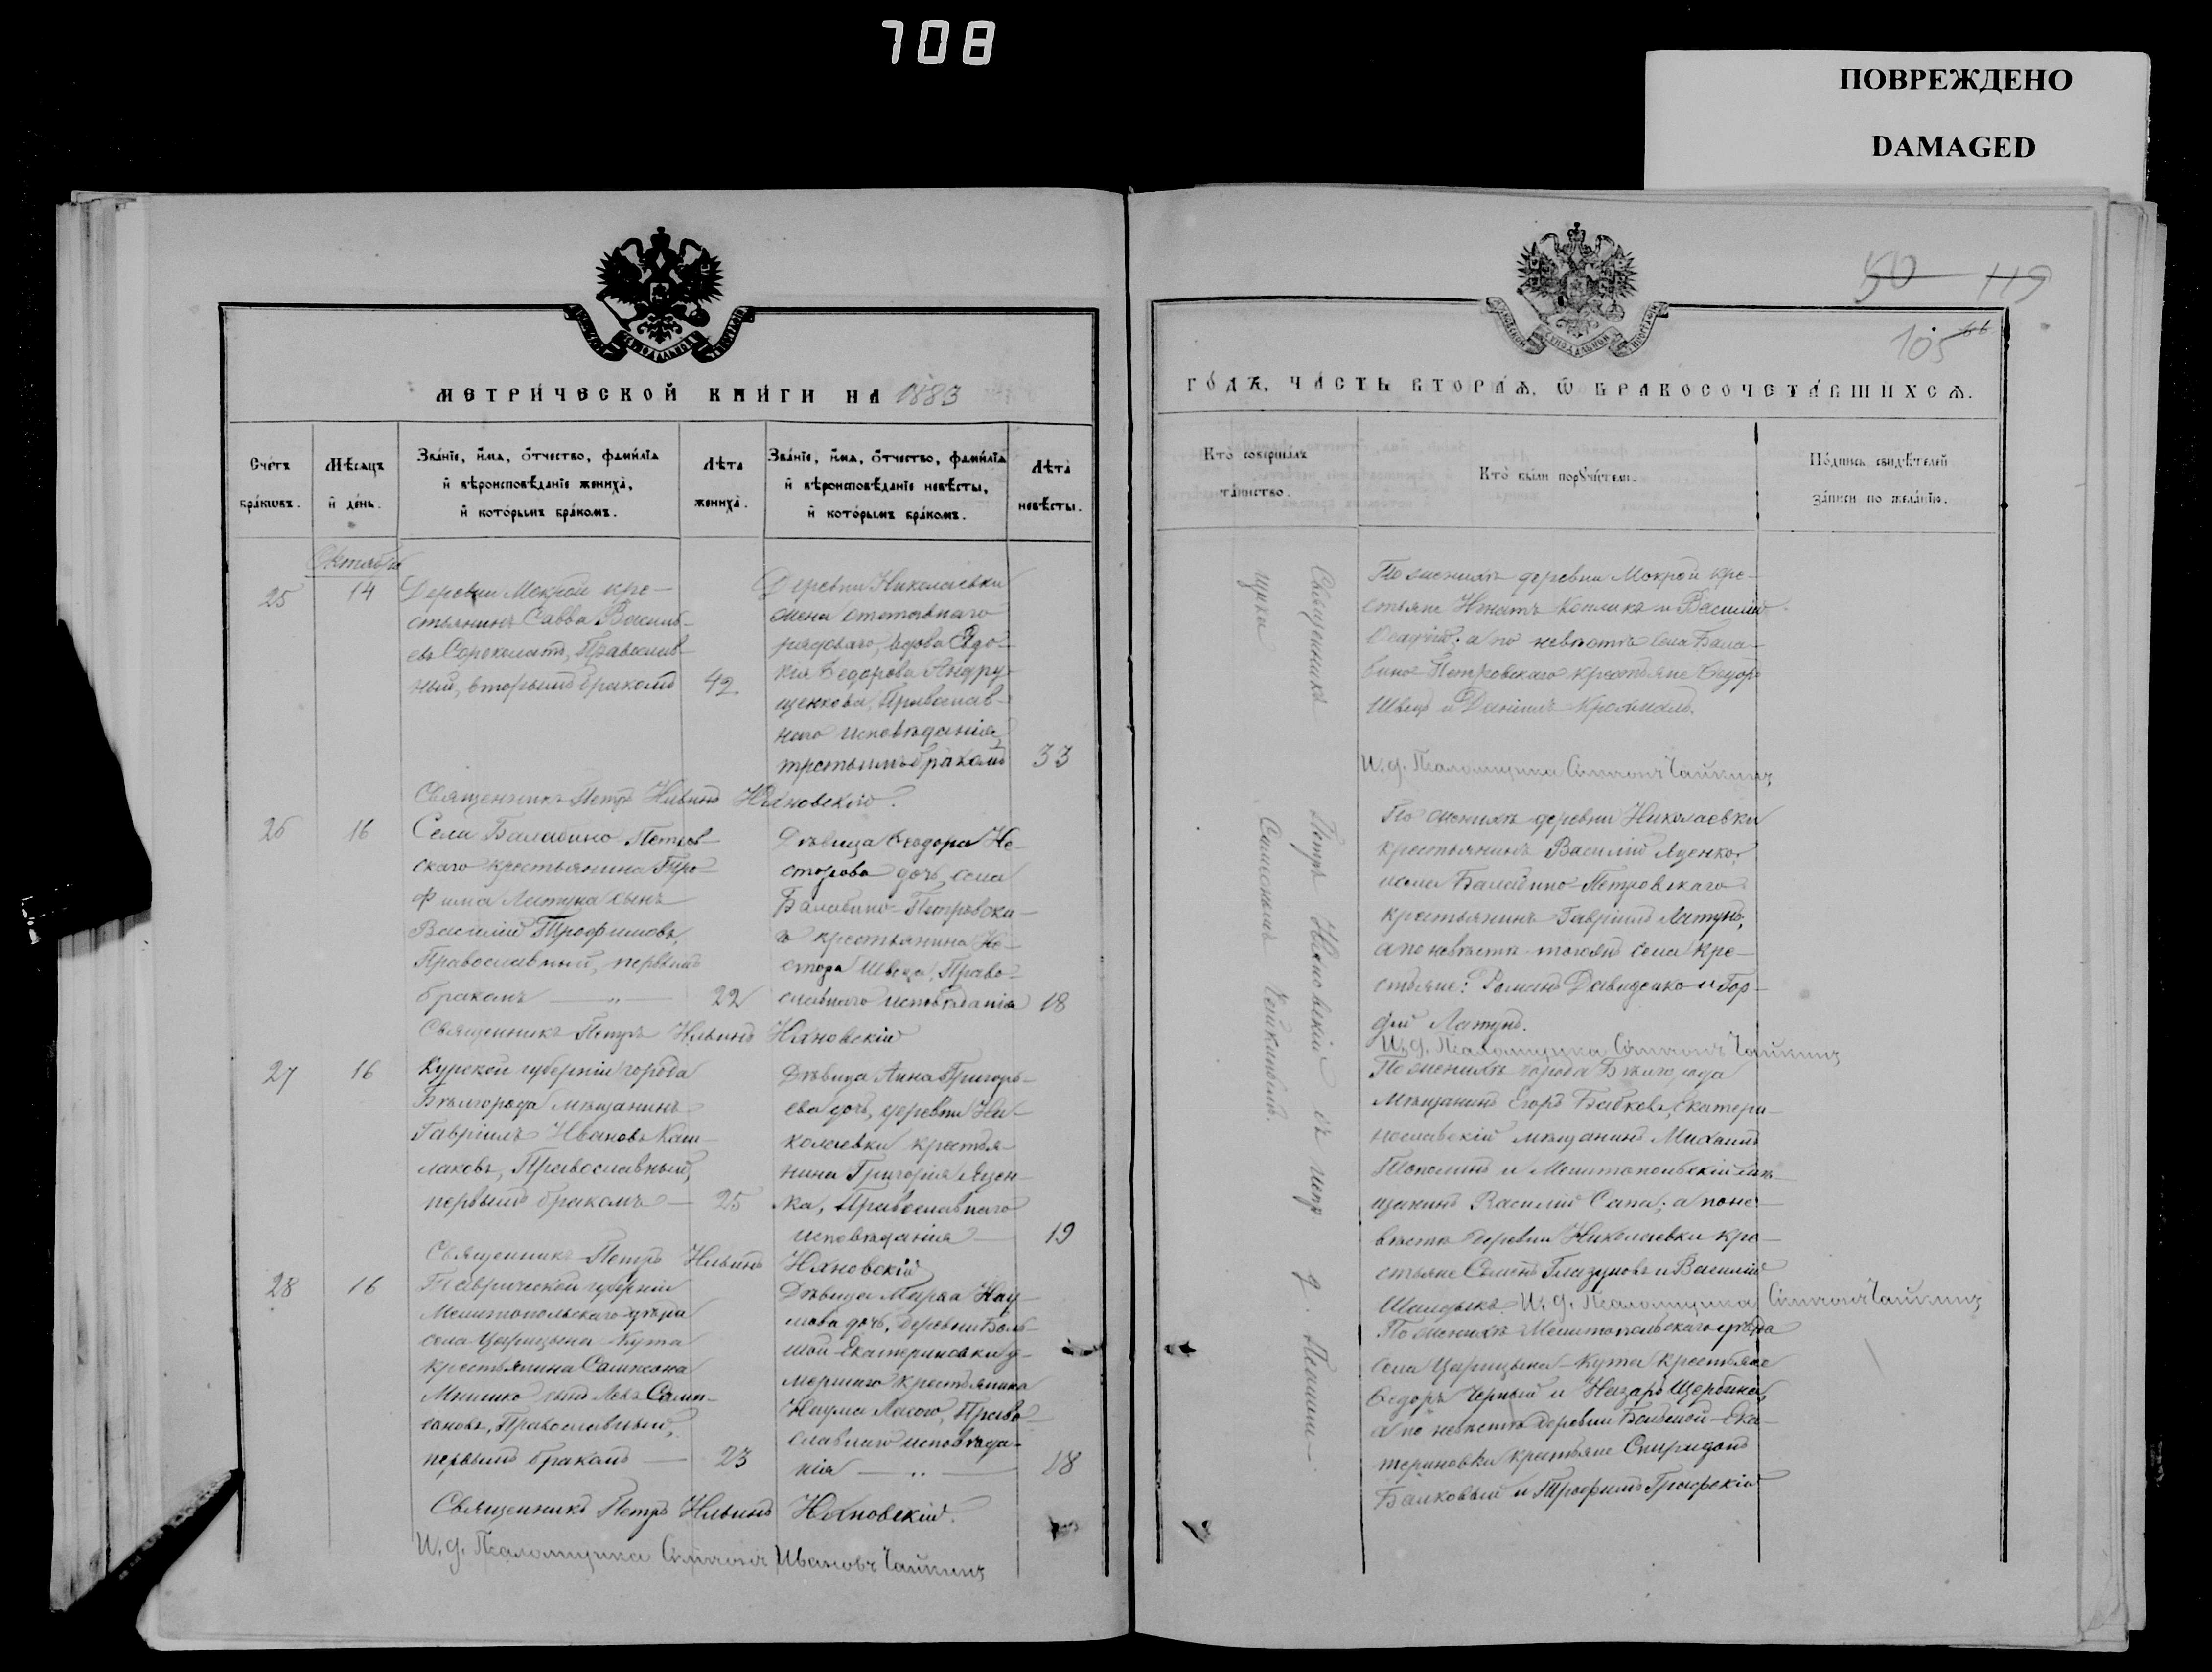 708
ПОВРЕЖДЕНО
DAMAGED
МЕТРИЧЕСКОЙ КНИГИ НА 1883
Счетъ браковъ.
Мѣсяцъ и день.
Званіе, имя, отчество, фамилія и вѣроисповѣданіе жениха, и которымъ бракомъ.
Лѣта жениха.
Званіе, имя, отчество, фамилія и вѣроисповѣданіе невѣсты, и которымъ бракомъ.
Лѣта невѣсты.
Октябрь
25
14
Деревни Мокрой кре-
стьянинъ Савва Василь-
евъ Сороколатъ, Православ-
ный, вторымъ бракомъ
42
Деревни Николаевки
жена отставнаго
рядоваго, вдова Евдо-
кія Ѳедорова Андру-
щенкова, Православ-
наго исповѣданія,
третьимъ бракомъ
33
Священникъ Петръ Ильинъ
26
16
Села Балабино-Петров-
скаго крестьянина Тро-
фима Латуна сынъ
Василій Трофимовъ,
Православный, первымъ
бракомъ — „ —
22
Дѣвица Ѳеодора Не-
сторова дочь, села
Балабино-Петровска-
го крестьянина Не-
стора Швеца, Право-
славнаго исповѣданія
18
Священникъ Петръ Ильинъ
27
16
Курской губерніи города
Бѣлгорода мѣщанинъ
Гавріилъ Ивановъ Каш-
лаковъ, Православный,
первымъ бракомъ —
25
Дѣвица Анна Григорь-
ева дочь, деревни Ни-
колаевки крестья-
нина Григорія Яцен-
ка, Православнаго
исповѣданія —
19
Священникъ Петръ Ильинъ
28
16
Таврической губерніи
Мелитопольскаго уѣзда
села Царицына-Кута
крестьянина Самсона
сынъ Левъ Самп-
соновъ, Православный,
первымъ бракомъ —
23
Дѣвица Марѳа Нау-
мова дочь, деревни Боль-
шой-Екатериновки у-
мершаго крестьянина
Наума Лысого, Право-
славнаго исповѣда-
нія — „ —
18
Священникъ Петръ Ильинъ
И. д. Псаломщика Симеонъ Ивановъ Чайкинъ
50 119
105 66
ГОДЪ, ЧАСТЬ ВТОРАЯ, О БРАКОСОЧЕТАВШИХСЯ.
Кто совершалъ таинство.
Кто были поручители.
Подпись свидѣтелей записи по желанію.
Священникъ Петръ
По женихѣ деревни Мокрой кре-
стьяне Игнатъ и Василій
а по невѣстѣ села Бала-
бино-Петровскаго крестьяне Ѳедоръ
Швецъ и Даніилъ Крохмаль.
И. д. Псаломщика Симеонъ Чайкинъ
По женихѣ деревни Николаевки
крестьянинъ Василій Яценко,
и села Балабино-Петровскаго
крестьянинъ Гавріилъ Латунъ,
а по невѣстѣ тогожъ села кре-
стьяне: Романъ Давиденко и Гор-
дій Латунъ.
И. д. Псаломщика Симеонъ Чайкинъ
По женихѣ города Бѣлгорода
мѣщанинъ Егоръ Бабковъ, Екатери-
нославскій мѣщанинъ Михаилъ
Тополинъ и Мелитопольскій мѣ-
щанинъ Василій Сапа; а по не-
вѣстѣ деревни Николаевки кре-
стьяне Семенъ Глазуновъ и Василій
И. д. Псаломщика Симеонъ Чайкинъ
По женихѣ Мелитопольскаго уѣзда
села Царицына-Кута крестьяне
Ѳедоръ Черный и Назаръ Щербина,
а по невѣстѣ деревни Большой-Ека-
териновки крестьяне Спиридонъ
Балковый и Трофимъ